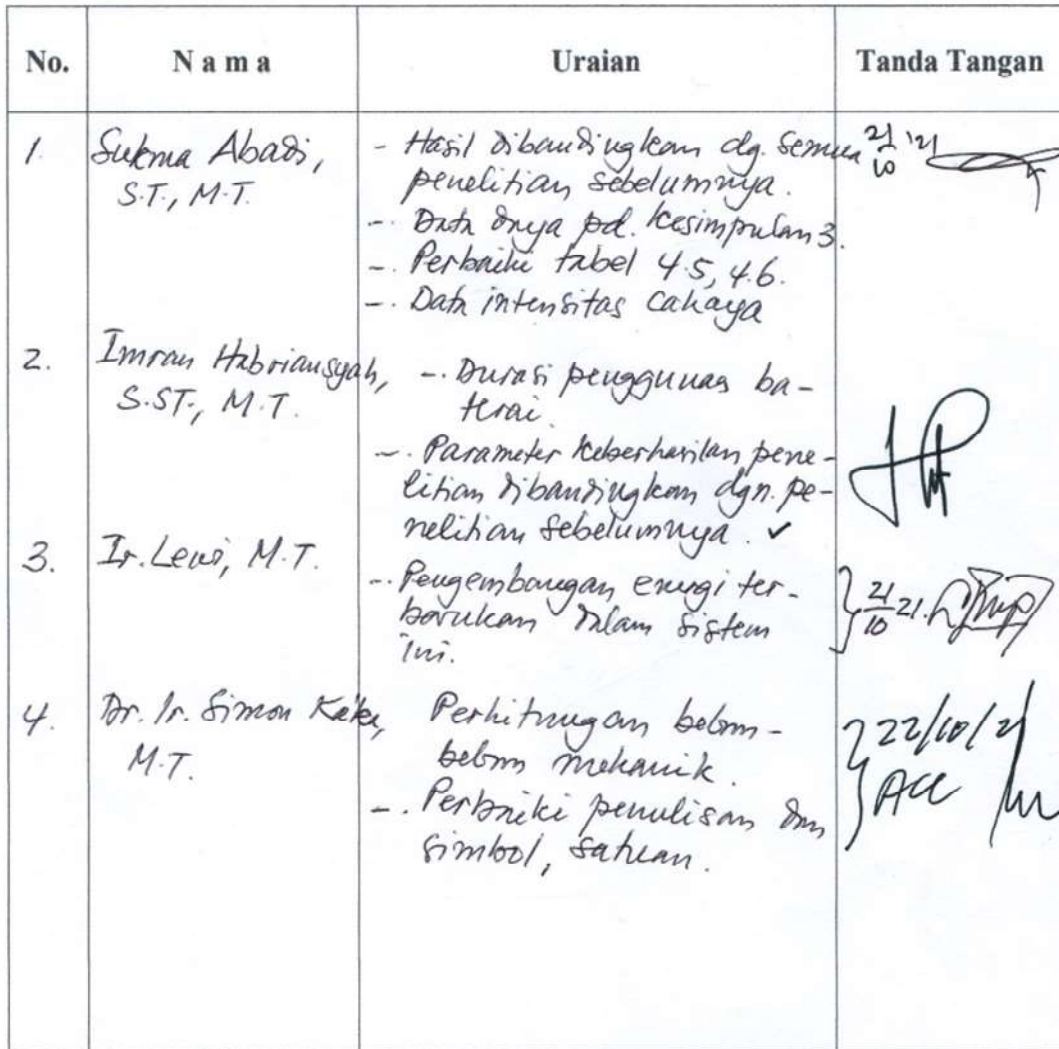 No.
N a m a
Uraian
Tanda Tangan
1.
Sukma Abadi,
S.T., M.T.
- Hasil dibandingkan dg. semua
penelitian sebelumnya.
- Data daya pd. kesimpulan 3.
- Perbaiki tabel 4.5, 4.6.
- Data intensitas cahaya
21/10 '21
2.
Imran Habriansyah,
S.ST., M.T.
- Durasi penggunaa ba-
terai.
- Parameter keberhasilan pene-
litian dibandingkan dgn. pe-
nelitian sebelumnya. ✓
3.
Ir. Lewi, M.T.
- Pengembangan energi ter-
barukan dalam sistem
ini.
21/10 21.
4.
Dr. Ir. Simon Ka'ka,
M.T.
Perhitungan beban-
beban mekanik.
- Perbaiki penulisan dan
simbol, satuan.
22/10/21
ACC